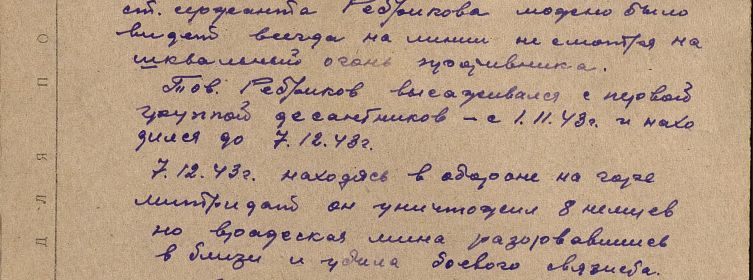 ст. сержанта Ребрикова можно было
видет всегда на линии не смотря на
шквальный огонь противника.
Тов. Ребриков высаживался с первой
группой десантников – с 1.11.43г. и нахо
дился до 7.12.43г.
7.12.43г. находясь в обороне на горе
митридат он уничтожил 8 немцев
но вражеская мина разорвавшись
в близи и убила боевого связиста.
ДЛЯ ПО